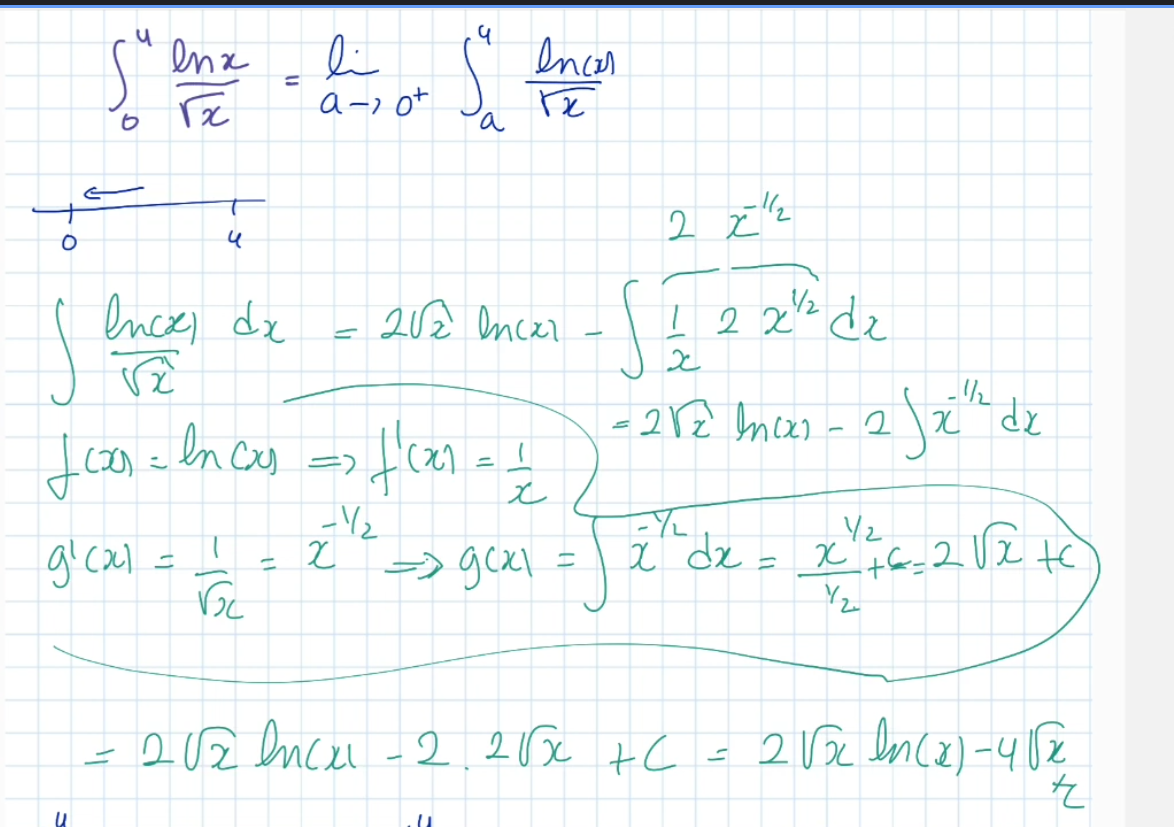 ∫₀⁴ lnx/√x = li a→0⁺ ∫ₐ⁴ ln(x)/√x
0 4
2 x^-1/2
∫ ln(x)/√x dx = 2√x ln(x) - ∫ 1/x 2 x^1/2 dx
= 2√x ln(x) - 2 ∫ x^-1/2 dx
f(x) = ln(x) => f'(x) = 1/x
g'(x) = 1/√x = x^-1/2 => g(x) = ∫ x^-1/2 dx = x^1/2 / 1/2 + c = 2√x + c
= 2√x ln(x) - 2 . 2√x + C = 2√x ln(x) - 4√x + c